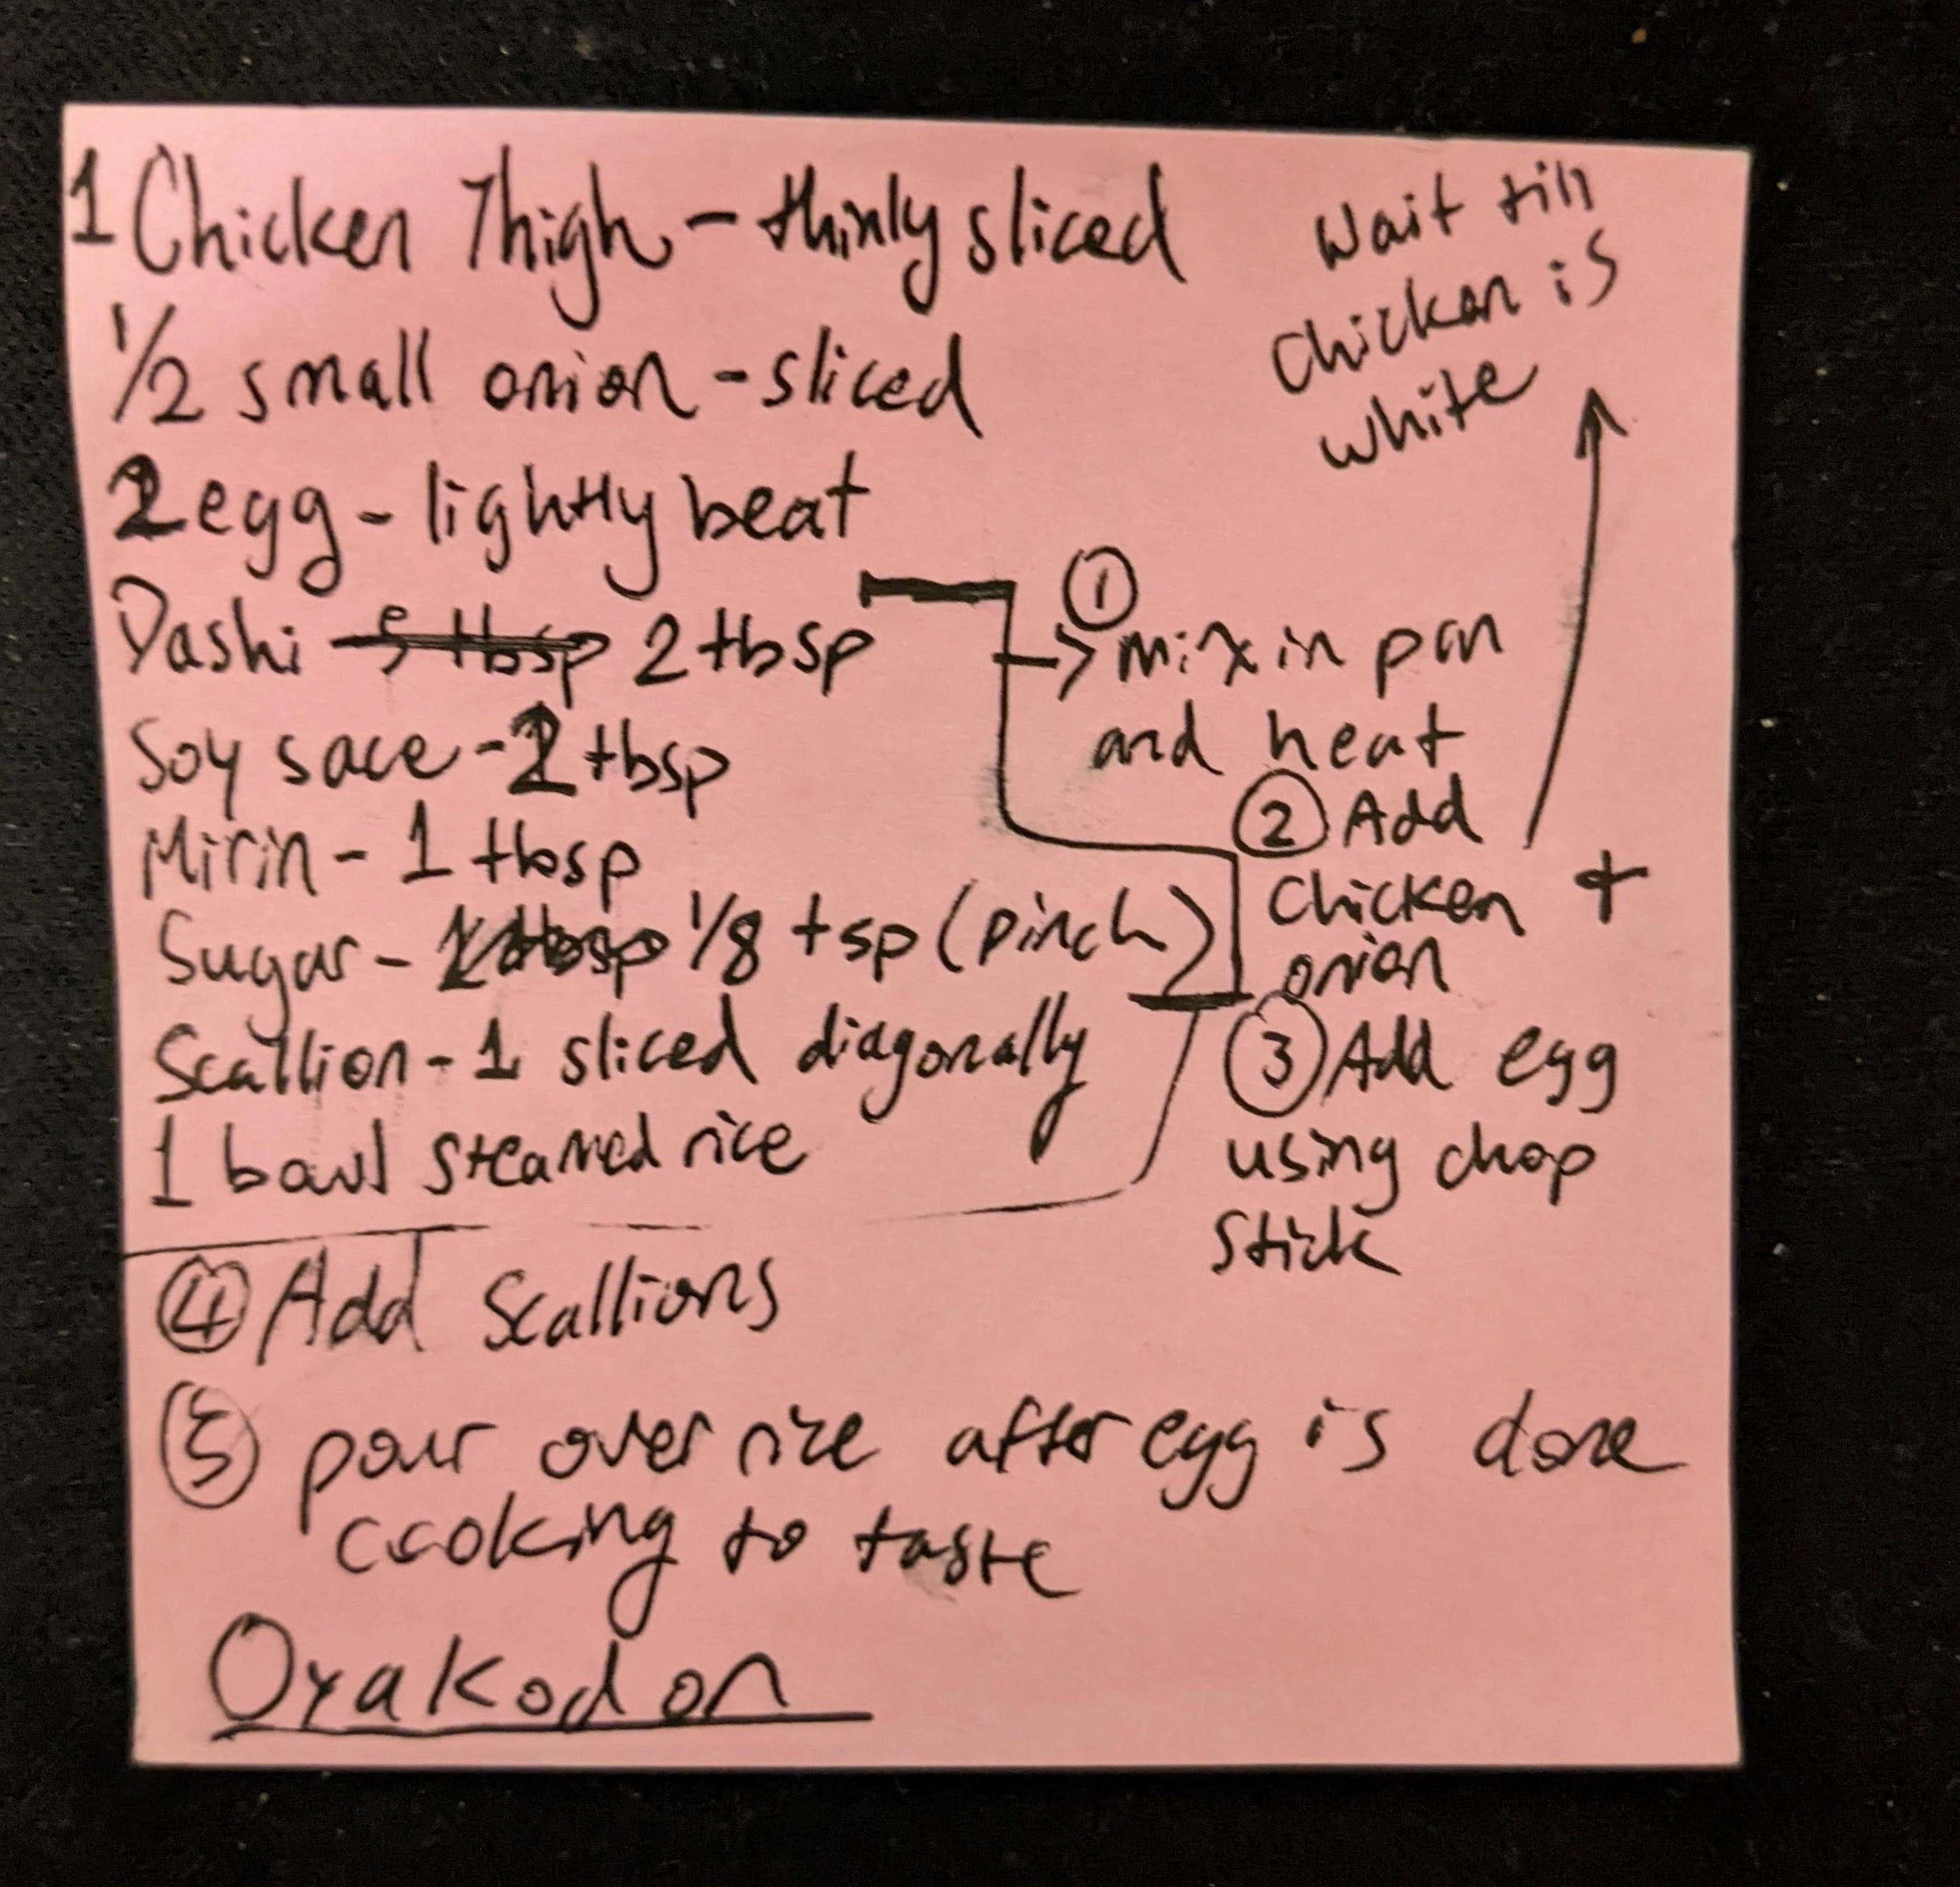 1 Chicken Thigh - thinly sliced
1/2 small onion - sliced
2 egg - lightly beat
Dashi 2 tbsp
Soy sace - 2 tbsp
Mirin - 1 tbsp
Sugar - 1/8 tsp (pinch)
Scallion - 1 sliced diagonally
1 bowl steamed rice
① → mix in pan
and heat
② Add
chicken +
onion
Wait till
chicken is
white
③ Add egg
using chop
stick
④ Add Scallions
⑤ pour over rice after egg is done
cooking to taste
Oyakodon